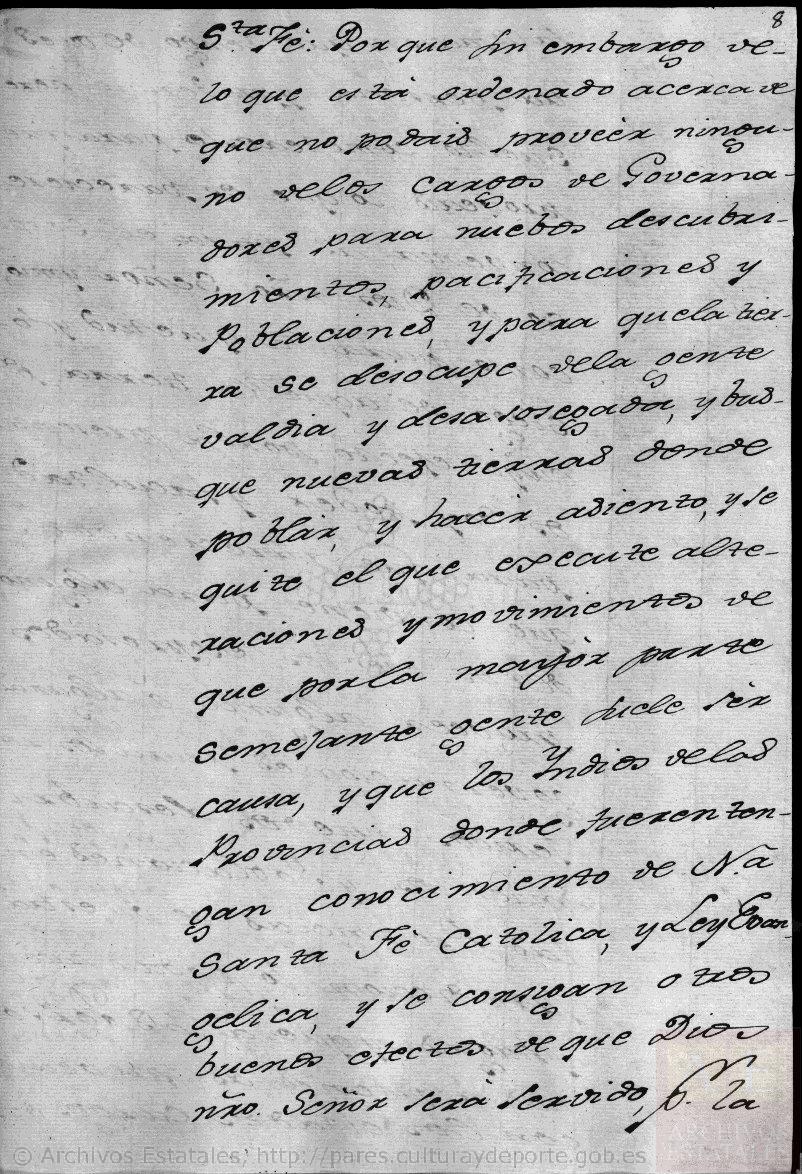 8
S.ta Fè: Por que sin embargo de
lo que està ordenado acerca de
que no podais proveèr ningu-
no delos cargos de Governa-
dores para nuebos descubri-
mientos, pacificaciones y
Poblaciones, y para que la tier-
ra se desocupe dela gente
valdia y desasosegada, y bus-
que nuevas tierras donde
poblar, y hacer asiento, y se
quite el que execute alte-
raciones y movimientos de
que por la mayòr parte
semejante gente suele sèr
causa, y que los Yndios delas
Provincias donde fueren ten-
gan conocimiento de N.a
Santa Fè Catolica, y Ley Evan-
gelica, y se consigan otros
buenos efectos de que Dios
nr̃o. Señor serà servido, p.r la
© Archivos Estatales, http://pares.culturaydeporte.gob.es
ARCHIVOS
ESTATALES